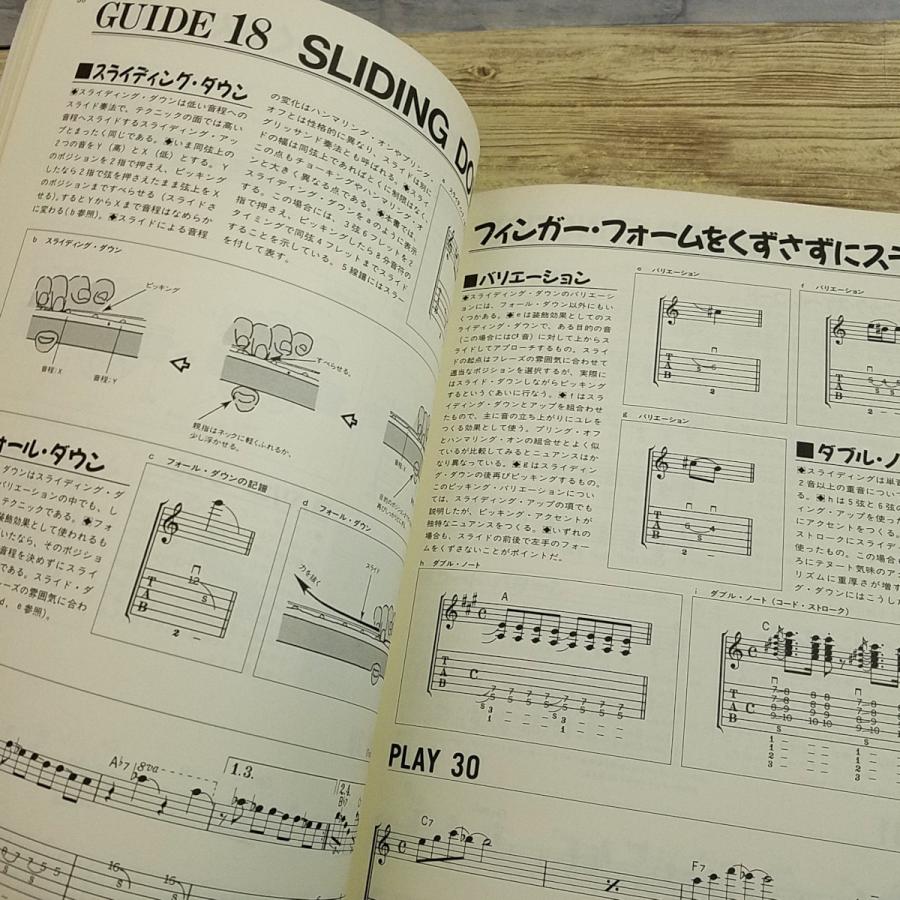 GUIDE 18 SLIDING DO
■スライディング・ダウン
◆スライディング・ダウンは低い音程への
スライド奏法で、テクニックの面では高い
音程へスライドするスライディング・アッ
プとまったく同じである。◆いま同弦上の
2つの音をY（高）とX（低）とする。Y
のポジションを2指で押さえ、ピッキング
したなら2指で弦を押さえたまま弦上をX
のポジションまですべらせる（スライドさ
せる）。するとYからXまで音程はなめらか
に変わる（b参照）。◆スライドによる音程
の変化はハンマリング・オンやプリング・
オフとは性格的に異なり、スライドは別に
グリッサンド奏法とも呼ばれる。◆スライ
ドの幅は同弦上であればとくに制限はなく、
この点もチョーキングやハンマリング・オ
ンと大きく異なる点である。◆本書では、
スライディング・ダウンをaのように表示
する。この場合には、3弦6フレットを2
指で押さえ、ピッキングしたら8分音符の
タイミングで同弦4フレットまでスライド
することを示している。5線譜にはスラー
を付して表す。
b スライディング・ダウン
ピッキング
音程：X
音程：Y
すべらせる。
親指はネックに軽くふれるか、
少し浮かせる。
ォール・ダウン
ダウンはスライディング・ダ
バリエーションの中でも、し
テクニックである。◆フォ
装飾効果として使われるも
いたなら、そのポジショ
音程を決めずにスライ
である。スライド・ダ
レーズの雰囲気に合わ
d、e参照）。
c フォール・ダウンの記譜
T
A
B
12
S
2 –
d フォール・ダウン
力を抜く
スライド
A♭7 8va
1.3.
2.4.
B♭7
16
S
15
フィンガー・フォームをくずさずにスラ
■バリエーション
◆スライディング・ダウンのバリエーシ
ョンには、フォール・ダウン以外にもい
くつかある。◆eは装飾効果としてのス
ライディング・ダウンで、ある目的の音
（この場合にはC♯音）に対して上からス
ライドしてアプローチするもの。スライ
ドの起点はフレーズの雰囲気に合わせて
適当なポジションを選択するが、実際に
はスライド・ダウンしながらピッキング
するというぐあいに行なう。◆fはスラ
イディング・ダウンとアップを組合わせ
たもので、主に音の立ち上がりにユレを
つくる効果として使う。プリング・オフ
とハンマリング・オンの組合せとよく似
ているが比較してみるとニュアンスはか
なり異なっている。◆gはスライディン
グ・ダウンの後再びピッキングするもの。
このピッキング・バリエーションについ
ては、スライディング・アップの項でも
説明したが、ピッキング・アクセントが
独特なニュアンスをつくる。◆いずれの
場合も、スライドの前後で左手のフォー
ムをくずさないことがポイントだ。
e バリエーション
T
A
B
S 6
2
f バリエーション
T
A
B
g バリエーション
T
A
B
6 4
S
2 –
■ダブル・ノ
◆スライディングは単音
2音以上の重音につい
る。◆hは5弦と6弦の
ィング・アップを使った
にアクセントをつくる。
ストロークにスライデ
使ったもの。この場合も
ろにテヌート気味のア
リズムに重厚さが増す
グ・ダウンにはこうしん
h ダブル・ノート
A
T
A
B
C
i ダブル・ノート（コード・ストローク）
C
T
A
B
C
PLAY 30
C7
F7